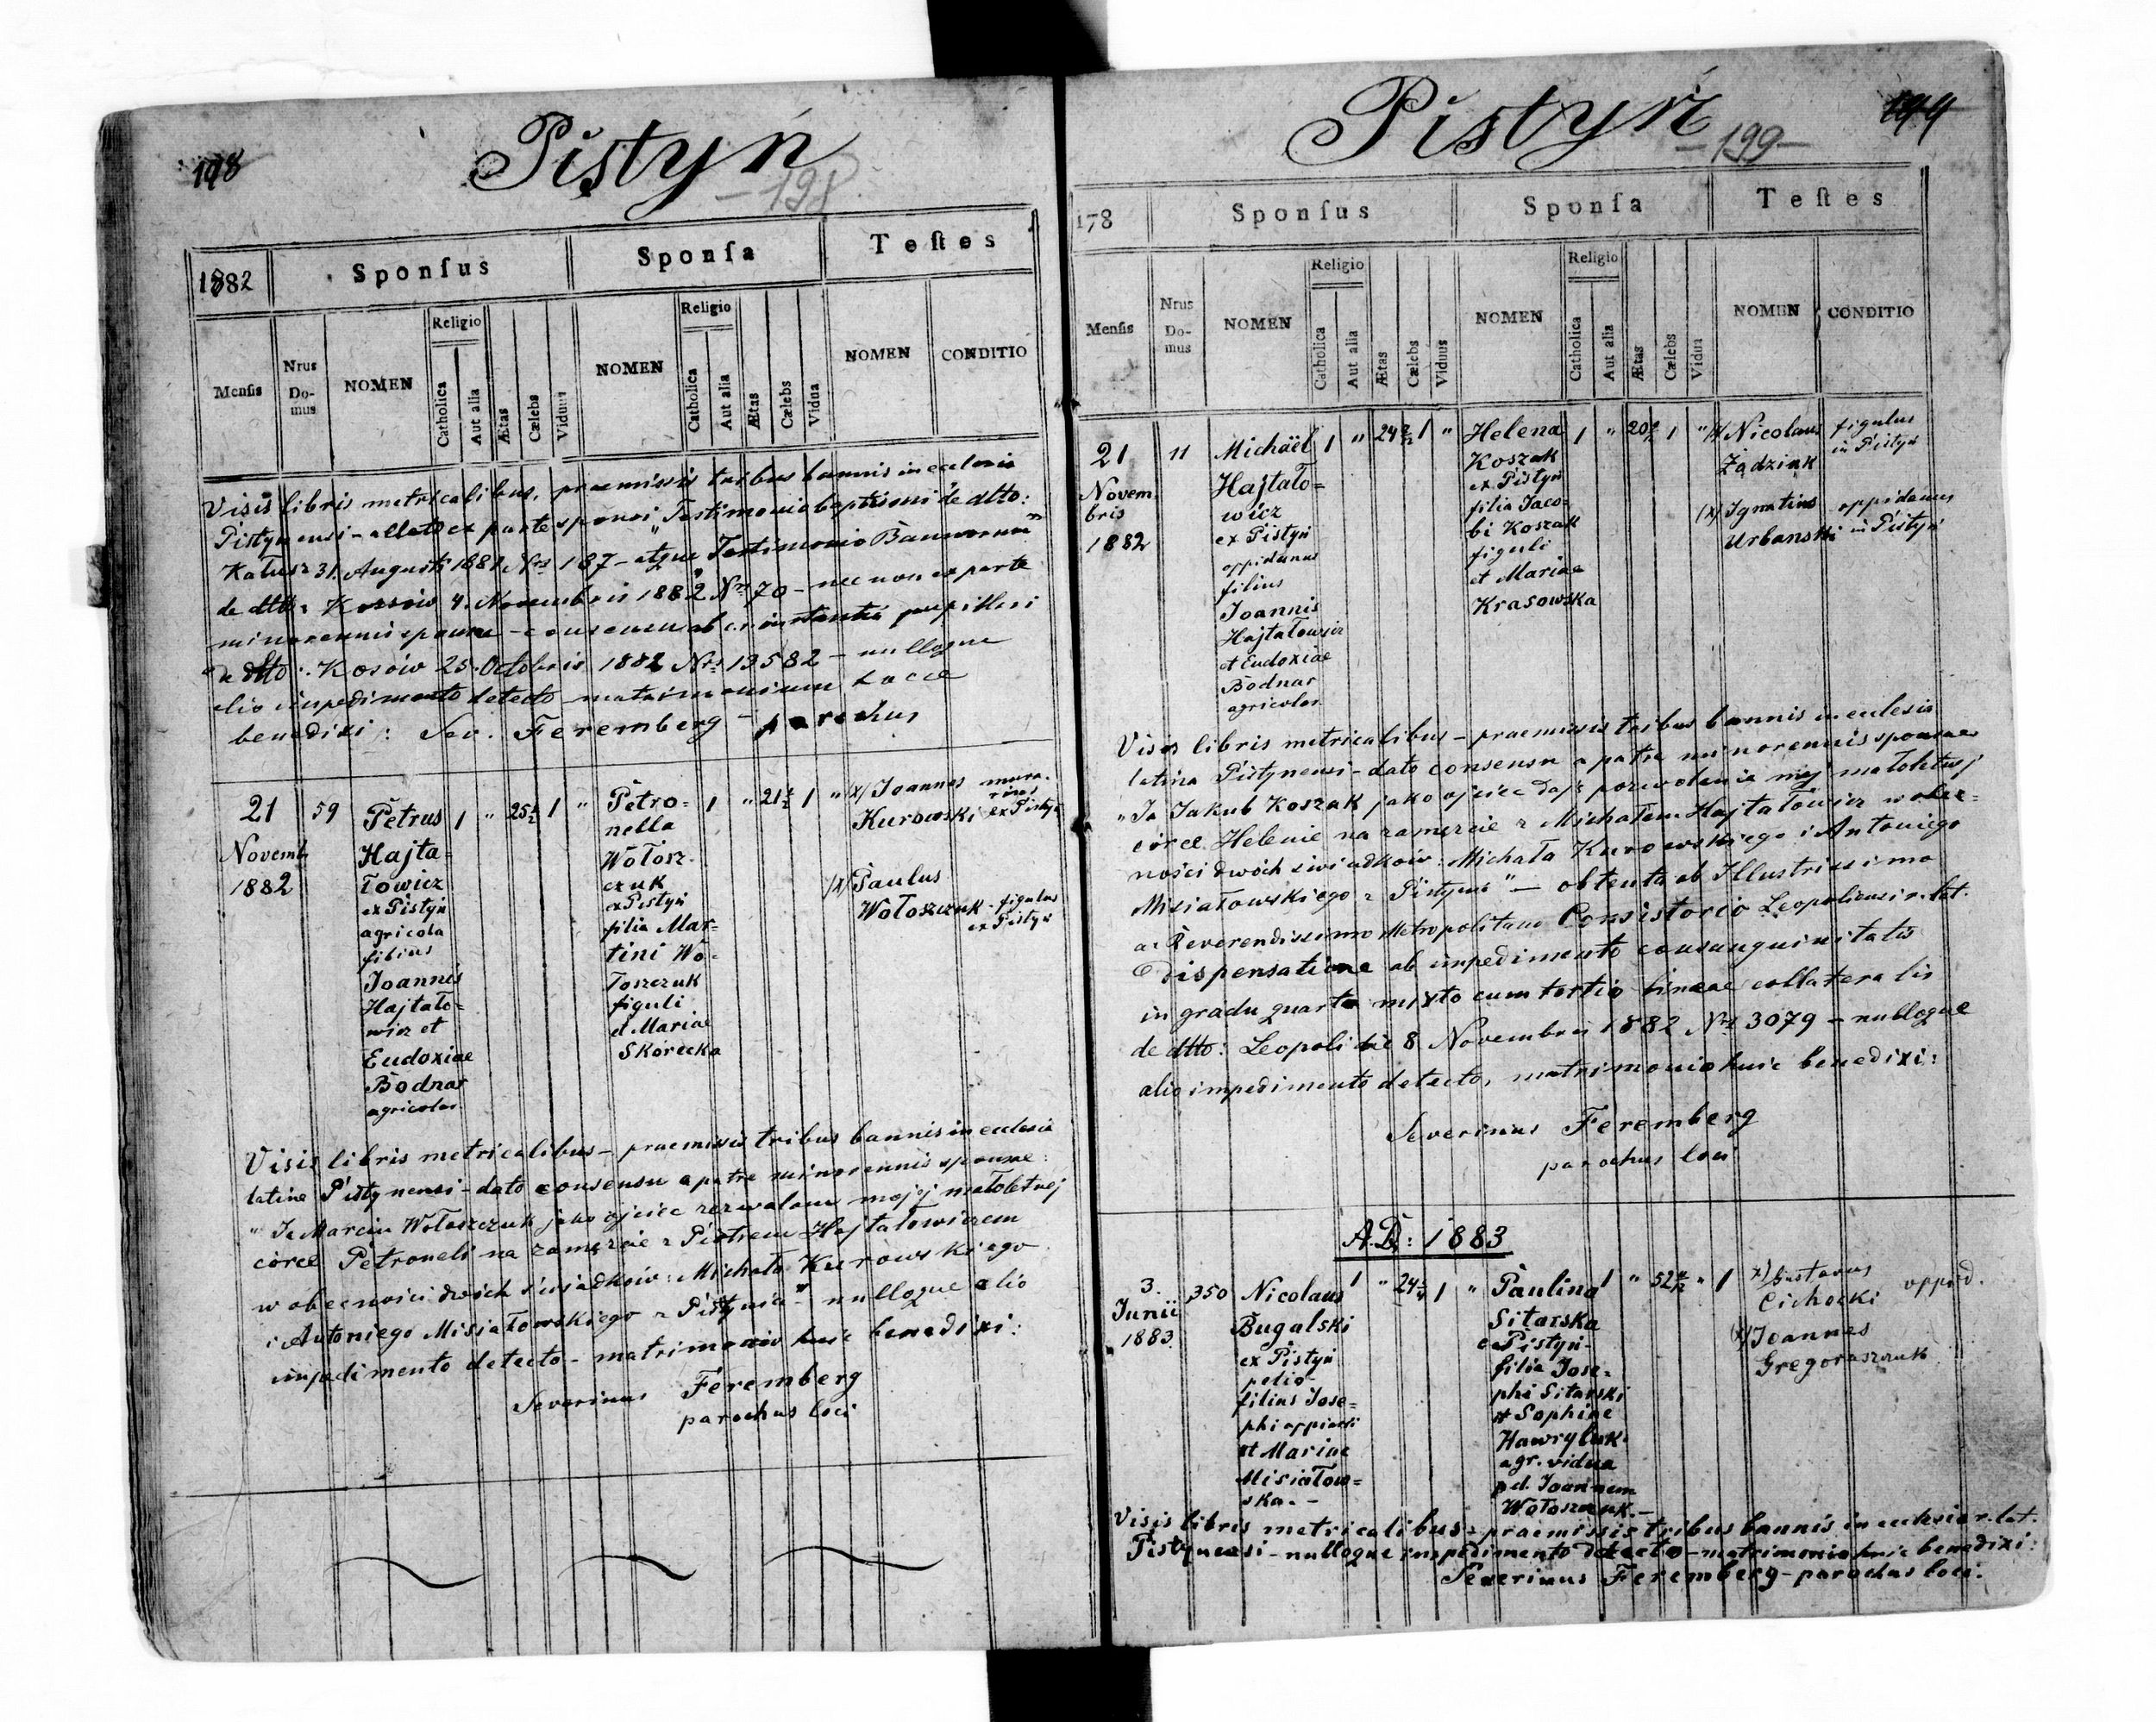 198
Pistyń
- 198
1882
Sponſus
Sponſa
Teſtes
Menſis
Nrus Domus
NOMEN
Religio
Catholica
Aut alia
Ætas
Cælebs
Viduus
NOMEN
Religio
Catholica
Aut alia
Ætas
Cælebs
Vidua
NOMEN
CONDITIO
Visis libris metricalibus, praemissis tribus bannis in ecclesia
Pistynensi - allato ex parte sponsi "Testimonio baptismi de dtto:
Kałusz 31. Augusti 1881 Nro 187 - atque Testimonio Bannorum"
de dtto: Kossów 4. Novembris 1882 Nro 70 - nec non ex parte
minorennis sponsae - consensu ab instantia pupillari
de dtto: Kosów 25. Octobris 1882 Nro 13582 - nulloque
alio impedimento detecto - matrimonium
benedixi: Sev. Feremberg - parochus
21
Novemb
1882
59
Petrus
Hajta-
łowicz
ex Pistyń
agricola
filius
Joannis
Hajtało-
wicz et
Eudoxiae
Bodnar
agricolar
1 " 25 1 "
Petro-
nella
Wołosz-
czuk
ex Pistyń
filia Mar-
tini Wo-
łoszczuk
figuli
et Mariae
Skorecka
1 " 21 1 "
(x) Joannes
Kurowski
mura-
rius
ex Pistyń
(x) Paulus
Wołoszczuk - figulus
ex Pistyń
Visis libris metricalibus - praemissis tribus bannis in ecclesia
latina Pistynensi - dato consensu a patre minorennis sponsae:
"Ja Marcin Wołoszczuk jako ojciec zezwalam mojej małoletniej
córce Petroneli na zamęzcie z Piotrem Hajtałowiczem
w obecności dwóch świadków: Michała Kurowskiego
i Antoniego Misiałowskiego z Pistynia" - nulloque alio
impedimento detecto - matrimonio huic benedixi:
Severinus Feremberg
parochus loci
199
Pistyń
- 199 -
178
Sponſus
Sponſa
Teſtes
Menſis
Nrus Domus
NOMEN
Religio
Catholica
Aut alia
Ætas
Cælebs
Viduus
NOMEN
Religio
Catholica
Aut alia
Ætas
Cælebs
Vidua
NOMEN
CONDITIO
21
Novem
bris
1882
11
Michäel
Hajtało-
wicz
ex Pistyń
oppidanus
filius
Joannis
Hajtałowicz
et Eudoxiae
Bodnar
agricolar
1 " 24 1 "
Helena
Koszak
ex Pistyń
filia Jaco-
bi Koszak
figuli
et Mariae
Krasowska
1 " 20 1 "
(x) Nicolaus
Żądziuk
figulus
in Pistyń
(x) Ignatius
Urbanski
oppidanus
in Pistyń
Visis libris metricalibus - praemissis tribus bannis in ecclesia
latina Pistynensi - dato consensu a patre minorennis sponsae
"Ja Jakub Koszak jako ojciec daję pozwolenie mej małoletniej
córce Helenie na zamęzcie z Michałem Hajtałowicz w obec-
ności dwóch świadków: Michała Kurowskiego i Antoniego
Misiałowskiego z Pistynia" - obtenta ab Illustrissimo
ac Reverendissimo Metropolitano Consistorio Leopoliensi r. lat.
Dispensatione ab impedimento consanguinitatis
in gradu quarto mixto cum tertio lineae collateralis
de dtto: Leopoli die 8 Novembris 1882 Nro 3079 - nulloque
alio impedimento detecto, matrimonio huic benedixi:
Severinus Feremberg
parochus loci
A.D: 1883
3.
Junii
1883.
350
Nicolaus
Bugalski
ex Pistyń
pelio
filius Jose-
phi oppidani
et Mariae
Misiałow-
ska. -
1 " 24 1 "
Paulina
Sitarska
ex Pistyń
filia Jose-
phi Sitarski
et Sophiae
Hawryluk
agr. vidua
p.d. Joannem
Wołoszczuk. -
1 " 52 " 1
x) Gustavus
Cichocki
oppid.
(x) Joannes
Gregoraszczuk
Visis libris metricalibus - praemissis tribus bannis in ecclesia r. lat.
Pistynensi - nulloque impedimento detecto - matrimonio huic benedixi:
Severinus Feremberg - parochus loci.